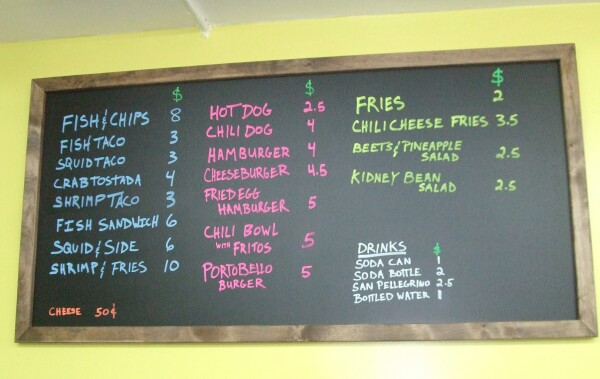 $
FISH & CHIPS 8
FISH TACO 3
SQUID TACO 3
CRAB TOSTADA 4
SHRIMP TACO 3
FISH SANDWICH 6
SQUID & SIDE 6
SHRIMP & FRIES 10
CHEESE 50¢
$
HOT DOG 2.5
CHILI DOG 4
HAMBURGER 4
CHEESEBURGER 4.5
FRIED EGG
HAMBURGER 5
CHILI BOWL
WITH FRITOS 5
PORTOBELLO 5
BURGER
$
FRIES 2
CHILI CHEESE FRIES 3.5
BEETS & PINEAPPLE
SALAD 2.5
KIDNEY BEAN
SALAD 2.5
DRINKS $
SODA CAN 1
SODA BOTTLE 2
SAN PELLEGRINO 2.5
BOTTLED WATER 1